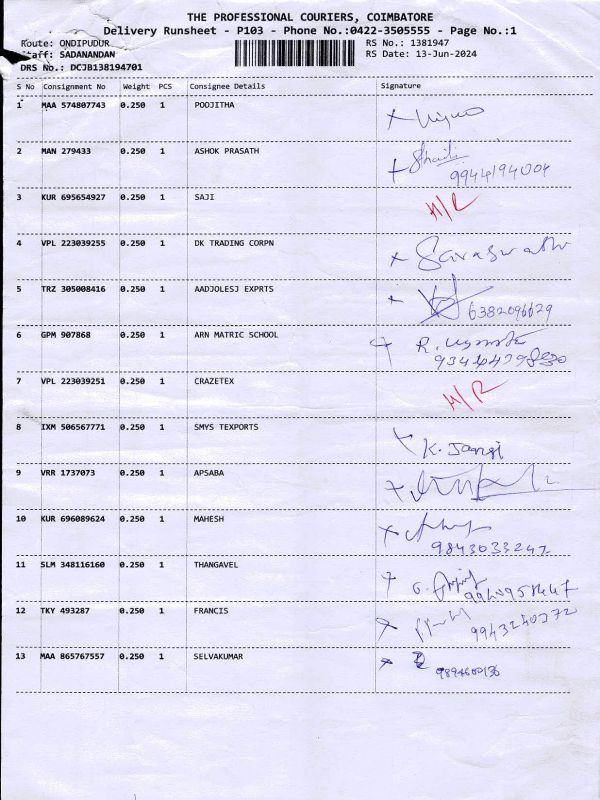 THE PROFESSIONAL COURIERS, COIMBATORE
Delivery Runsheet - P103 - Phone No.:0422-3505555 - Page No.:1
Route: ONDIPUDUR RS No.: 1381947
Staff: SADANANDAN RS Date: 13-Jun-2024
DRS No.: DCJB138194701
S No Consignment No Weight PCS Consignee Details Signature
1 MAA 574807743 0.250 1 POOJITHA
2 MAN 279433 0.250 1 ASHOK PRASATH
9944194004
3 KUR 695654927 0.250 1 SAJI
4 VPL 223039255 0.250 1 DK TRADING CORPN Saraswathi
5 TRZ 305008416 0.250 1 AADJOLESJ EXPRTS
6382096629
6 GPM 907868 0.250 1 ARN MATRIC SCHOOL R.
7 VPL 223039251 0.250 1 CRAZETEX
8 IXM 506567771 0.250 1 SMYS TEXPORTS
K. Jangi
9 VRR 1737073 0.250 1 APSABA
10 KUR 696089624 0.250 1 MAHESH
9843033247
11 SLM 348116160 0.250 1 THANGAVEL
12 TKY 493287 0.250 1 FRANCIS
9943240372
13 MAA 865767557 0.250 1 SELVAKUMAR
9894600136